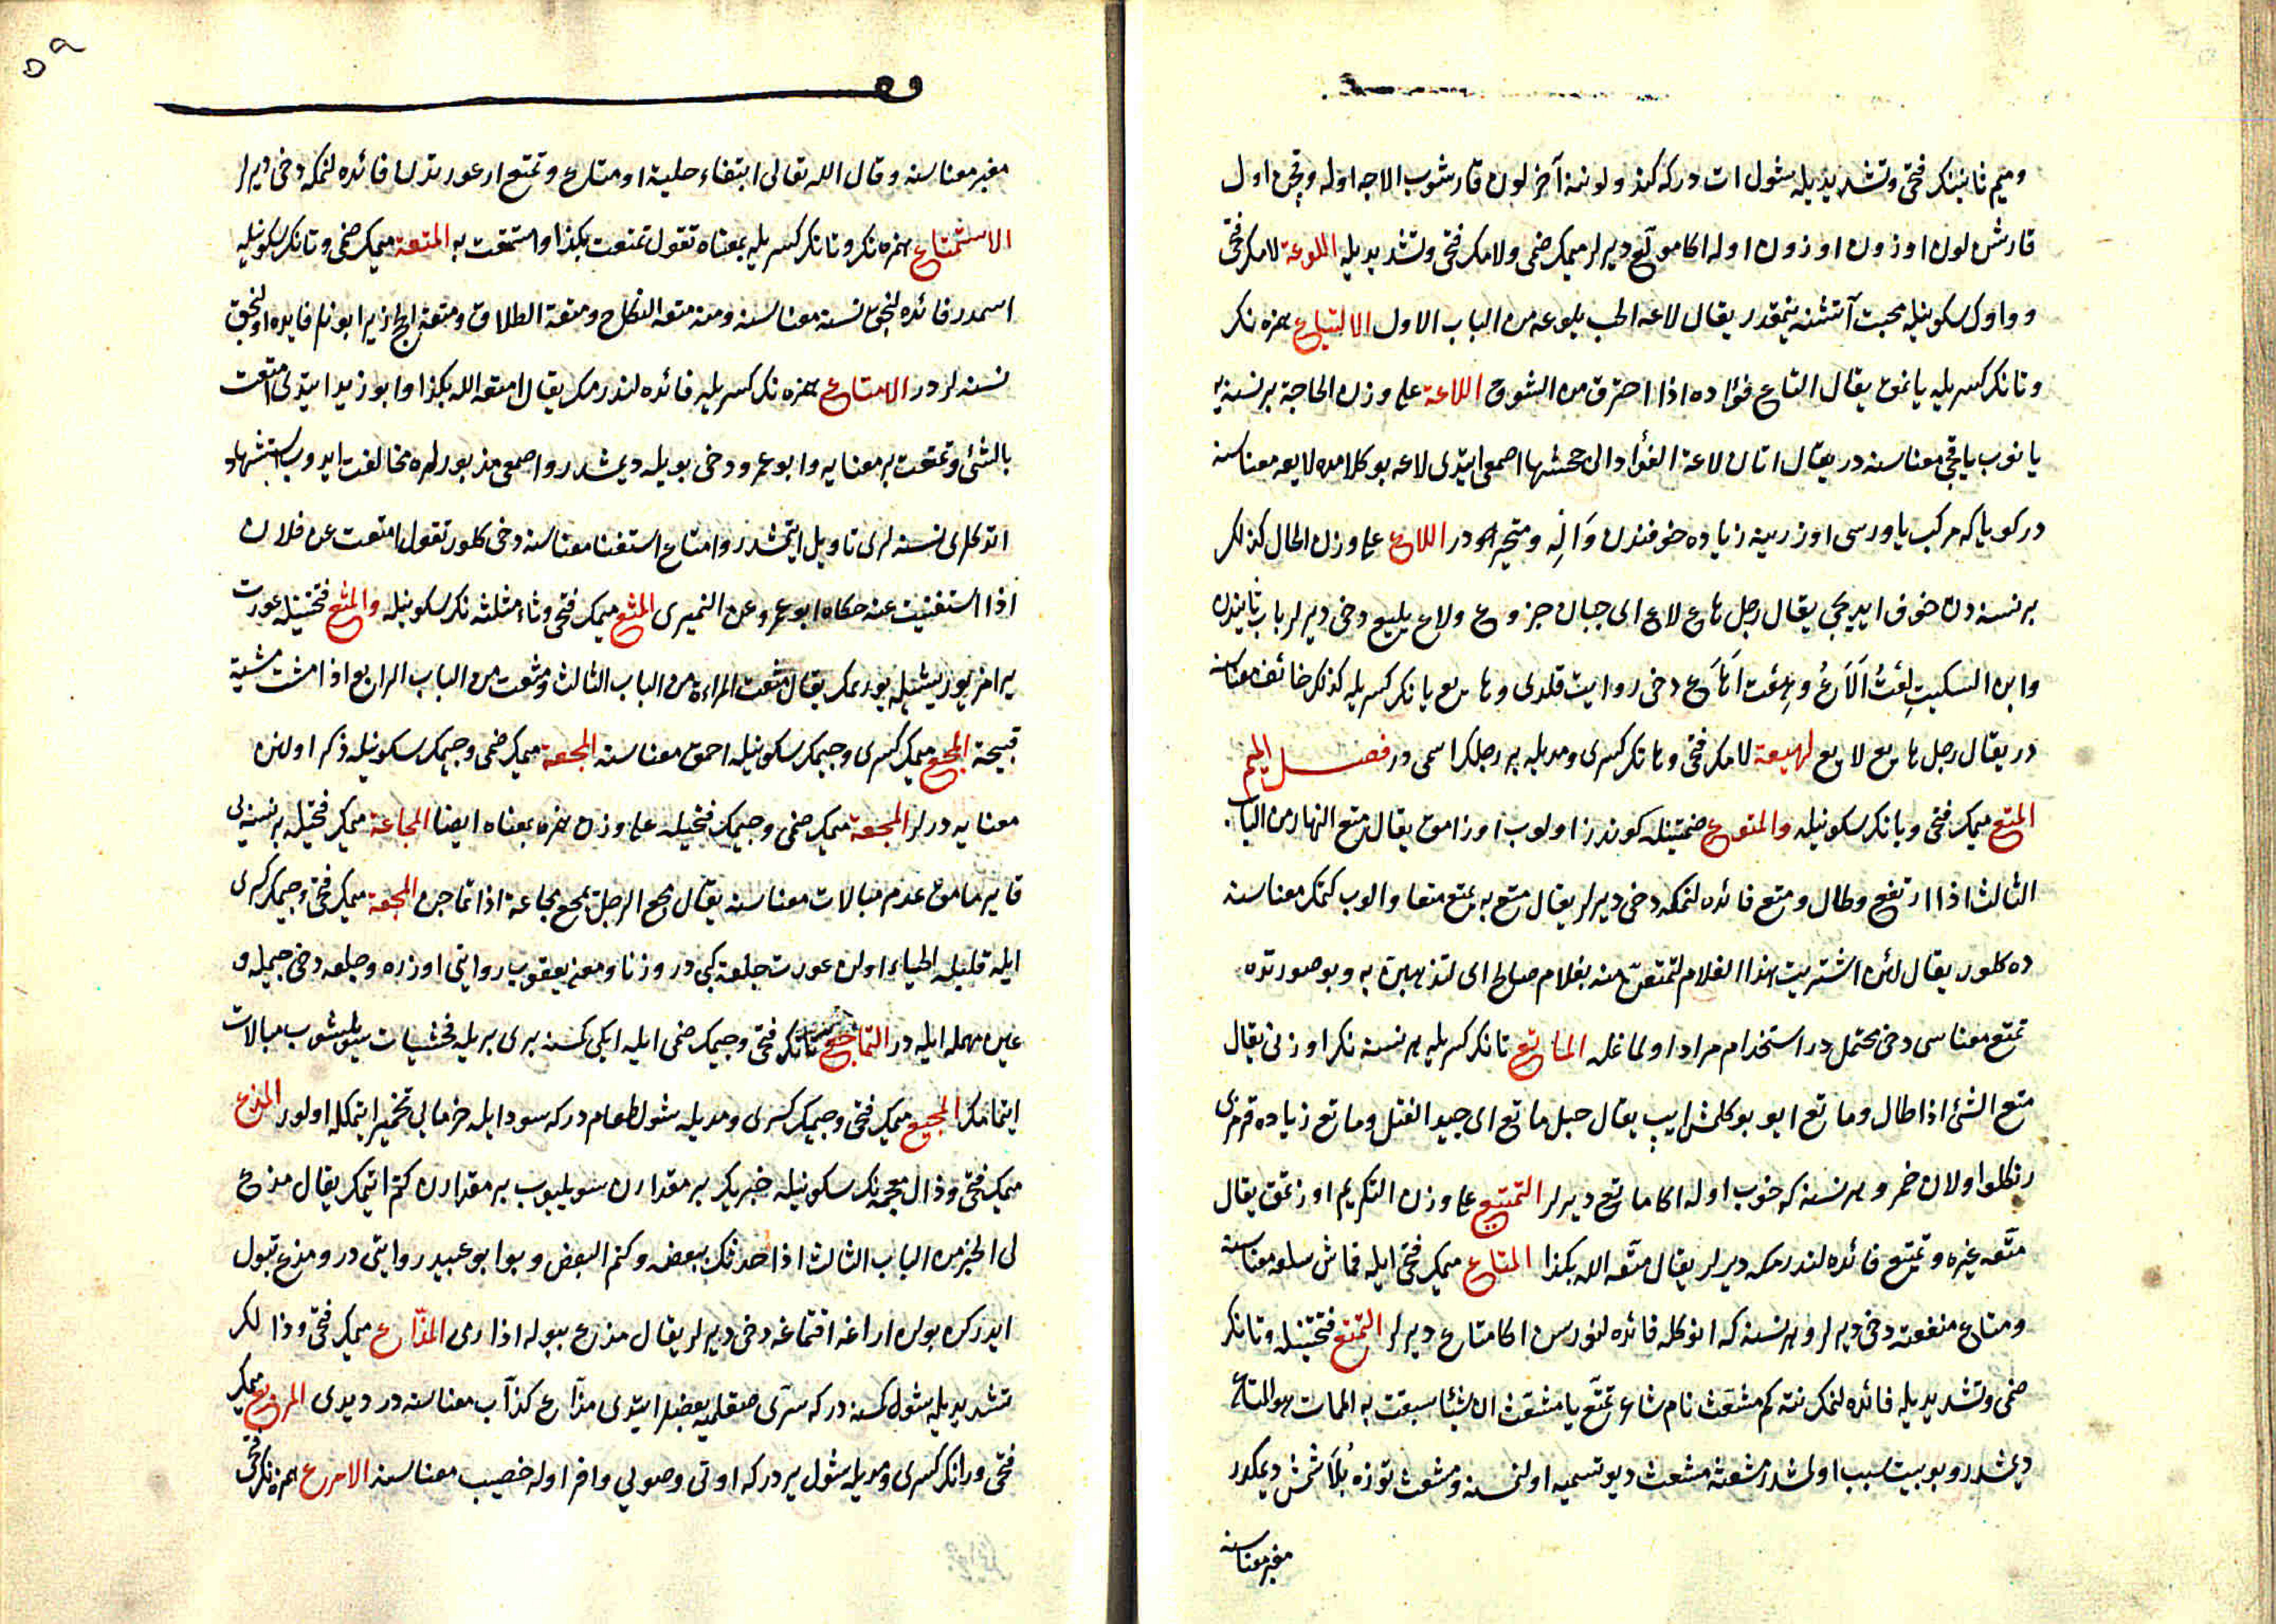 وميم ثانينك فتحى وتشديديله شول ات دركه كندو لوننه آخر لون قارشوب الاجه اوله وقچن اول
قارشن لون اوزون اوزون اوله اكا مولّع ديرلر ميمك ضمى ولامك فتحى وتشديديله اللوعة لامك فتحى
وواوك سكونيله محبت آتشنه يقمقدر يقال لاعه الحب يلوعه من الباب الاول الالتياع همزه نك
وتانك كسريله يانمق يقال التاع فؤاده اذا احترق من الشوق اللاعة على وزن الحاجة برنسنه يه
يانوب ياقچى معناسنه در يقال اتان لاعة الفؤاد الى جحشها اصمعى ايتدى لاعه بو كلامده لايعه معناسنه
در كويا كه مركب ياورسى اوزرينه زياده خوفندن وَالِه ومتحيره در اللاع على وزن الحال كذلك
برنسنه دن خوف ايديجى يقال رجل هاع لاع اى جبان جزوع ولاع يليع دخى ديرلر باب ثانيدن
وابن السكيت لِعْتُ اَلَاعُ وهِعْت اَهَاع دخى روايت قلدى وهايع يانك كسريله كذلك خائف معناسنه
در يقال رجل هايع لايع لهيعة لامك فتحى وهانك كسرى ومديله بر رجلك اسمى در فصل الميم
المتع ميمك فتحى وتانك سكونيله والمتوع ضمتينله كوندز اولوب اوزامق يقال متع النهار من الباب
الثالث اذا ارتفع وطال ومتع فائده لنمكه دخى ديرلر يقال متع به يمتع متعا والوب كتمك معناسنه
ده كلور يقال لئن اشتريت هذا الغلام لتمتعنّ منه بغلام صالح اى لتذهبن به وبو صورتده
تمتع معناسى دخى محتمل در استخدام مراد اولماغله الماتع تانك كسريله هر نسنه نك اوزنى يقال
متع الشئ اذا طال وماتع ايو بوكلمش ايپ يقال حبل ماتع اى جيد الفتل وماتع زياده قرمزى
رنكلو اولان خمر وهر نسنه كه خوب اوله اكا ماتع ديرلر التمتيع على وزن التكريم اوزتمق يقال
متّعه غيره وتمتيع فائده لندرمكه ديرلر يقال متّعه الله بكذا المتاع ميمك فتحى ايله قماش سلعه معناسنه
ومتاع منفعته دخى ديرلر وهر نسنه كه انوكله فائده لنورسن اكا متاع ديرلر التمتع فتحتينله وتانك
ضمى وتشديديله فائده لنمك نته كم مشعّث نام شاعر تمتّع يا مشعّث ان شيئا سبقت به الممات هو المتاع
ديمشدر وبو بيت سبب اولمشدر مشعثه مشعث ديو تسميه اولنمسنه ومشعث توزه بُلَاشمش ديمكدر
مغبر معناسنه
٥٩
مغبر معناسنه وقال الله تعالى ابتغاء حلية او متاع وتمتع ار عورتدن فائده لنمكه دخى ديرلر
الاستمتاع همزه نك وتانك كسريله بمعناه تقول تمتعت بكذا واستمتعت به المتعة ميمك ضمى وتانك سكونيله
اسمدر فائده لنجق نسنه معناسنه ومنه متعة النكاح ومتعة الطلاق ومتعة الحج زيرا بونلر فايده لنجق
نسنه لردر الامتاع همزه نك كسريله فائده لندرمك يقال امتعه الله بكذا وابو زيد ايتدى امتعت
بالشئ وتمتعت بر معنايه وابو عمرو دخى بويله ديمشدر واصمعى مذبورلره مخالفت ايدوب استشهاد
اتدكلرى نسنه لرى تاويل ايتمشدر وامتاع استغنا معناسنه دخى كلور تقول امتعت عن فلان
اذا استغنيت عنه حكاه ابو عمرو عن النميرى المثع ميمك فتحى وثاء مثلثه نك سكونيله والمثع فتحتينله عورت
يرامز يوريشيله يوريمك يقال مثعت المراءة من الباب الثالث ومثعت من الباب الرابع اذا مشت مشية
قبيحة المجع ميمك كسرى وجيمك سكونيله احمق معناسنه المجعة ميمك ضمى وجيمك سكونيله ذكر اولنن
معنايه درلر المجعة ميمك ضمى وجيمك فتحيله على وزن همزه بمعناه ايضا المجاعة ميمك فتحيله بر نسنه يى
قايرمامق عدم مبالات معناسنه يقال مجع الرجل يمجع مجاعة اذا تماجن المجعة ميمك فتحى وجيمك كسرى
ايله قليله الحياء اولن عورت جلعة كبى در وزنا ومعنى يعقوب روايتى اوزره وجلعه دخى جيمله و
عين مهمله ايله در التماجع تانك فتحى وجيمك ضمى ايله ايكى كمسنه برى بريله فحشيات سويلشوب مبالات
ايتمامك المجيع ميمك فتحى وجيمك كسرى ومديله شول طعام دركه سود ايله خرمايى تخمير ايتمكله اولور المذع
ميمك فتحى وذال معجمه نك سكونيله خبرك بر مقدارن سويليوب بر مقدارن كتم اتمك يقال مذع
لى الخبر من الباب الثالث اذا حدثك ببعضه وكتم البعض وبو ابو عبيد روايتى در ومذع تبول
ايدركن بولن اراغه اقتماغه دخى ديرلر يقال مذع ببوله اذا رمى المذّاع ميمك فتحى وذالك
تشديديله شول كمسنه دركه سرّى صقلميه بعضلر ايتدى مذّاع كذّاب معناسنه در ديدى المريع ميمك
فتحى ورانك كسرى ومديله شول ير دركه اوتى وصويى وافر اوله خصيب معناسنه الامرع همزه نك فتحى